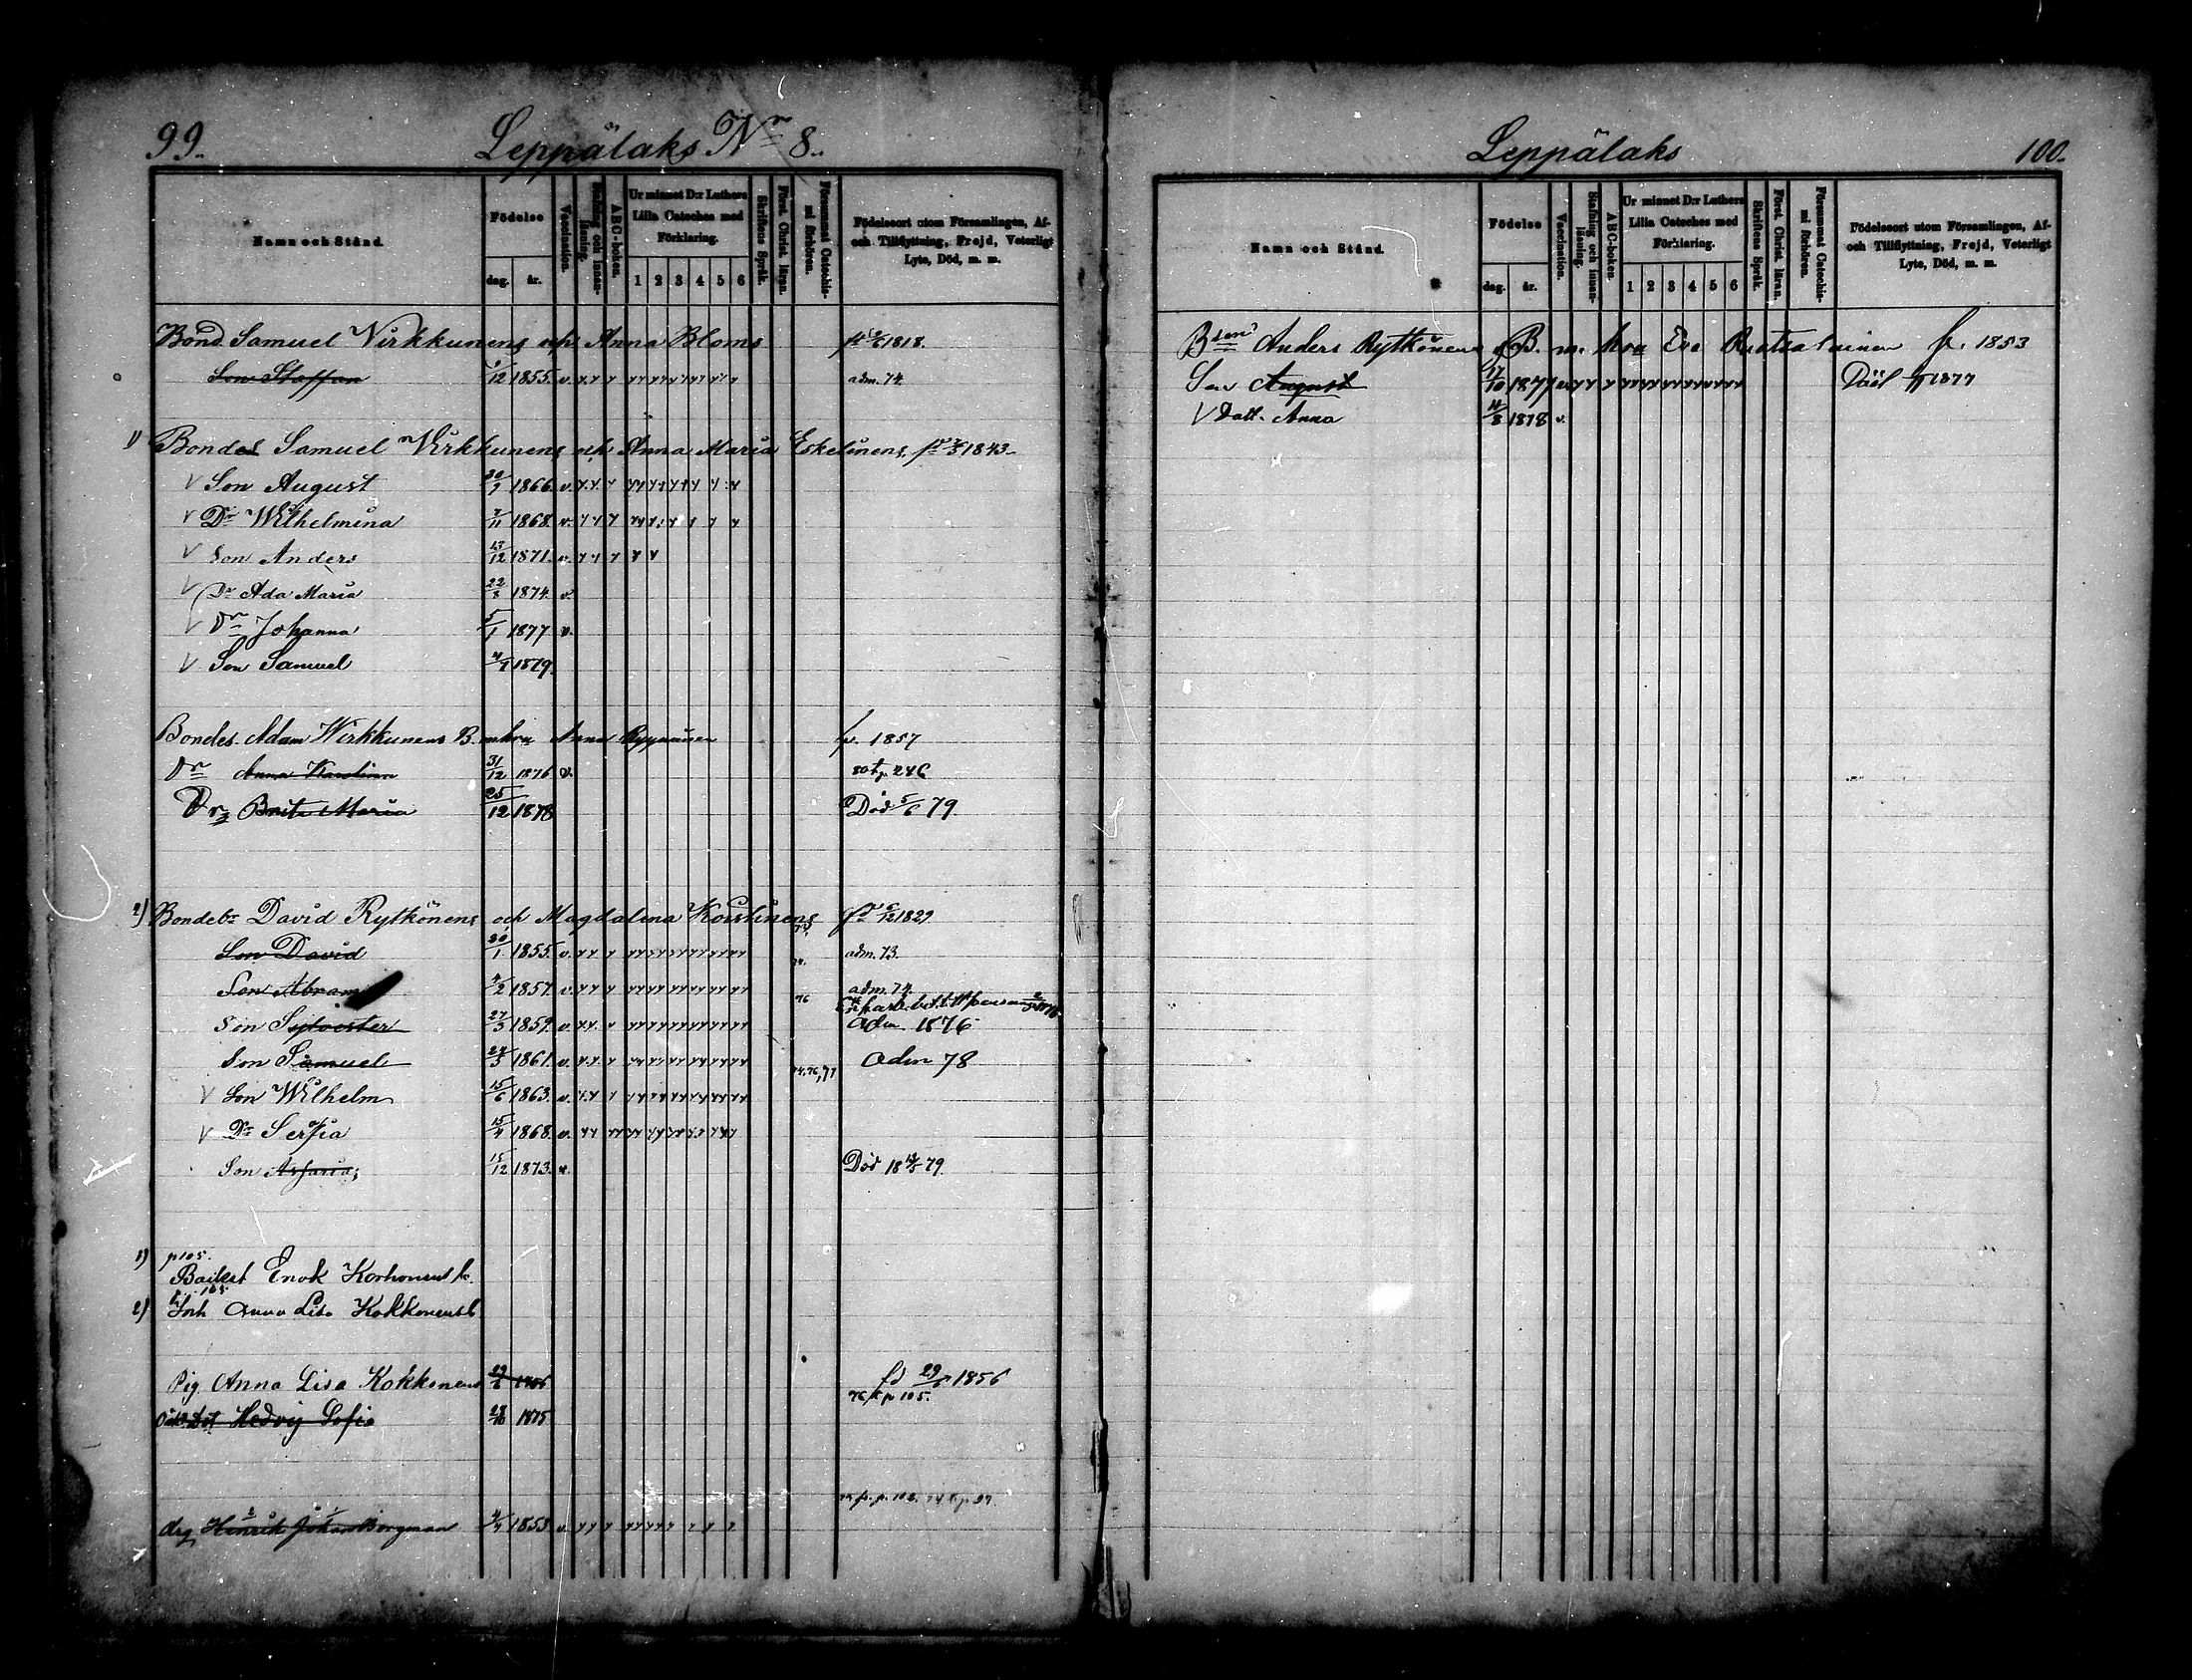 99.
Leppälaks Nr 8.
Namn och Stånd.
Födelse
dag. år.
Vaccination.
Stafning och innanläsning.
ABC-boken.
Ur minnet D:r Luthers Lilla Cateches med Förklaring.
1 2 3 4 5 6
Skriftens Språk.
Först. Christ. läran.
Försummat Catechismi förhören.
Födelseort utom Församlingen, Af- och Tillflyttning, Frejd, Veterligt Lyte, Död, m. m.
Bond Samuel Virkkunens Anna Bloms 1818.
Son Staffan 12 1855. v. adm. 74.
1) Bondes Samuel Virkkunens och Anna Maria Eskelinens 1843.
V Son August 1866. v.
V Dr Wilhelmina 11 1868. v.
V Son Anders 13/12 1871. v.
V Dr Ada Maria 22/8 1874. v.
V Dr Johanna 5/1 1877 v.
V Son Samuel 1879.
Bondes Adam Wirkkunens B. m hru Anna f. 1857
Dr Anna Karolina 31/12 1876 v. 80 t.p. 246
Dr Brita Maria 25/12 1878 Död 5/6 79.
2) Bondebr David Rytkönens och Magdalena Korhinens 1829
Son David 30/1 1855. v. adm. 73.
Son Abram 1857. v. adm. 74.
Son Sylvester 27/3 1859. v. adm. 1876
Son Samuel 24/3 1861. v. adm 78
74, 76, 77
V Son Wilhelm 15/6 1863. v.
V Dr Serfia 15/4 1868. v.
Son Asarias 15/12 1873. v. Död 79.
1) p 105.
Enok Korhonens
2) p. 105.
Inh Anna Lisa Kokkonens
Pig Anna Lisa Kokkonens 29/6 fd 29/6 1856
76 p 105.
Dot Hedvig Sofia 28/10 1875
drg Henrik Johan Borgman 1853 v.
Leppälaks
100.
Namn och Stånd.
Födelse
dag. år.
Vaccination.
Stafning och innanläsning.
ABC-boken.
Ur minnet D:r Luthers Lilla Cateches med Förklaring.
1 2 3 4 5 6
Skriftens Språk.
Först. Christ. läran.
Försummat Catechismi förhören.
Födelseort utom Församlingen, Af- och Tillflyttning, Frejd, Veterligt Lyte, Död, m. m.
Bson Anders Rytkönens B. m. hru Eva f. 1853
Son August 17/10 1877 v Död 1877
V Dott. Anna 11/8 1878 v.